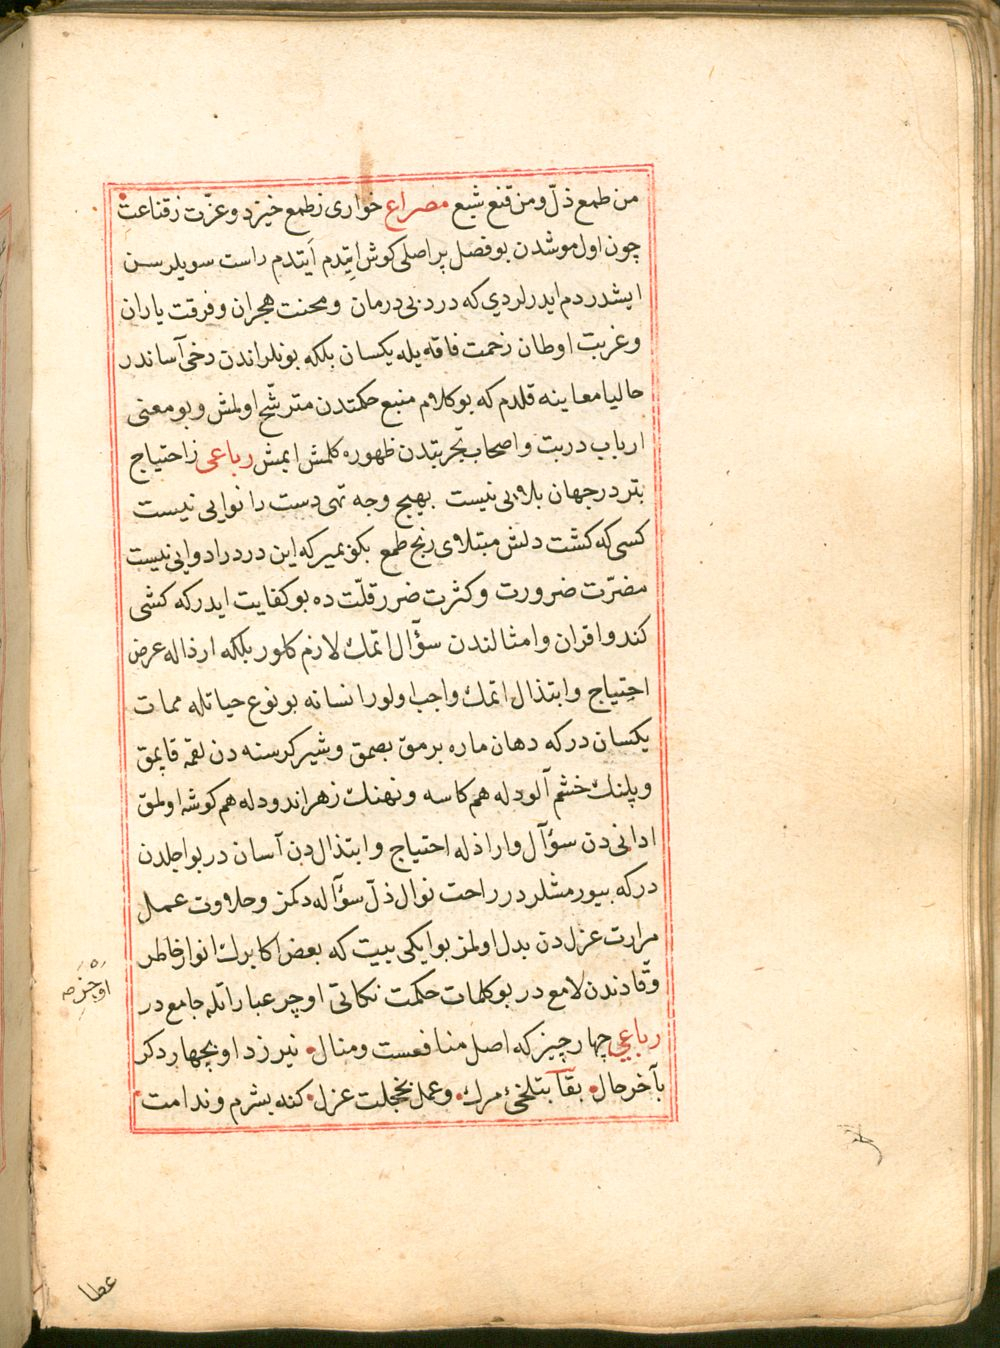 من طمع ذلّ ومن قنع شبع مصراع خواری زطمع خیزد وعزّت زقناعت
چون اول موشدن بو فصل پر اصلی کوش ایتدم آیتدم راست سویلرسن
ایشدردم ایدرلردی که درد بی درمان ومحنت هجران وفرقت یاران
وغربت اوطان زحمت فاقه یله یکسان بلکه بونلراندن دخی آساندر
حالیا معاینه قلدم که بو کلام منبع حکمتدن مترشّح اولمش وبو معنی
ارباب دربت واصحاب تجربتدن ظهوره کلمش ایمش رباعی زاحتیاج
بتر در جهان بلاءیی نیست بهیچ وجه تهی دست را نوایی نیست
کسی که کشت دلش مبتلای رنج طمع بکو بمیر که این درد را دوایی نیست
مضرّت ضرورت وکثرت ضرر قلّت ده بو کفایت ایدر که کشی
کندو اقران وامثالندن سؤال اتمك لازم کلور بلکه ارذاله عرض
احتیاج وابتذال اتمك واجب اولور انسانه بو نوع حیاتله ممات
یکسان در که دهان ماره برمق بصمق وشیر کرسنه دن لقمه قاپمق
وپلنك خشم آلودله هم کاسه ونهنك زهراندودله هم کوشه اولمق
ادانی دن سؤال واراذله احتیاج وابتذال دن آسان در بواجلدن
در که بیورمشلر در راحت نوال ذلّ سؤاله دکمز وحلاوت عمل
مرارت عزل دن بدل اولمز بو ایکی بیت که بعض اکابرك انوار خاطر
وقّادندن لامع در بو کلمات حکمت نکاتی اوجز عباراتله جامع در
رباعی چهار چیز که اصل منافعست ومنال نیرزد او بچهار دکر
بآخر حال بقا بتلخیٔ مرك وعمل بخجلت عزل کنه بشرم وندامت
اوجز صح
عطا